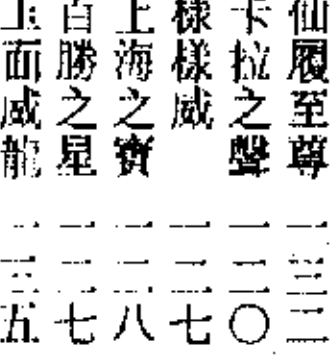 仙履至尊 一三二
卡拉之聲 一二〇
樣樣威 一二七
上海之寶 一二八
百勝之星 一二七
玉面威龍 一三五